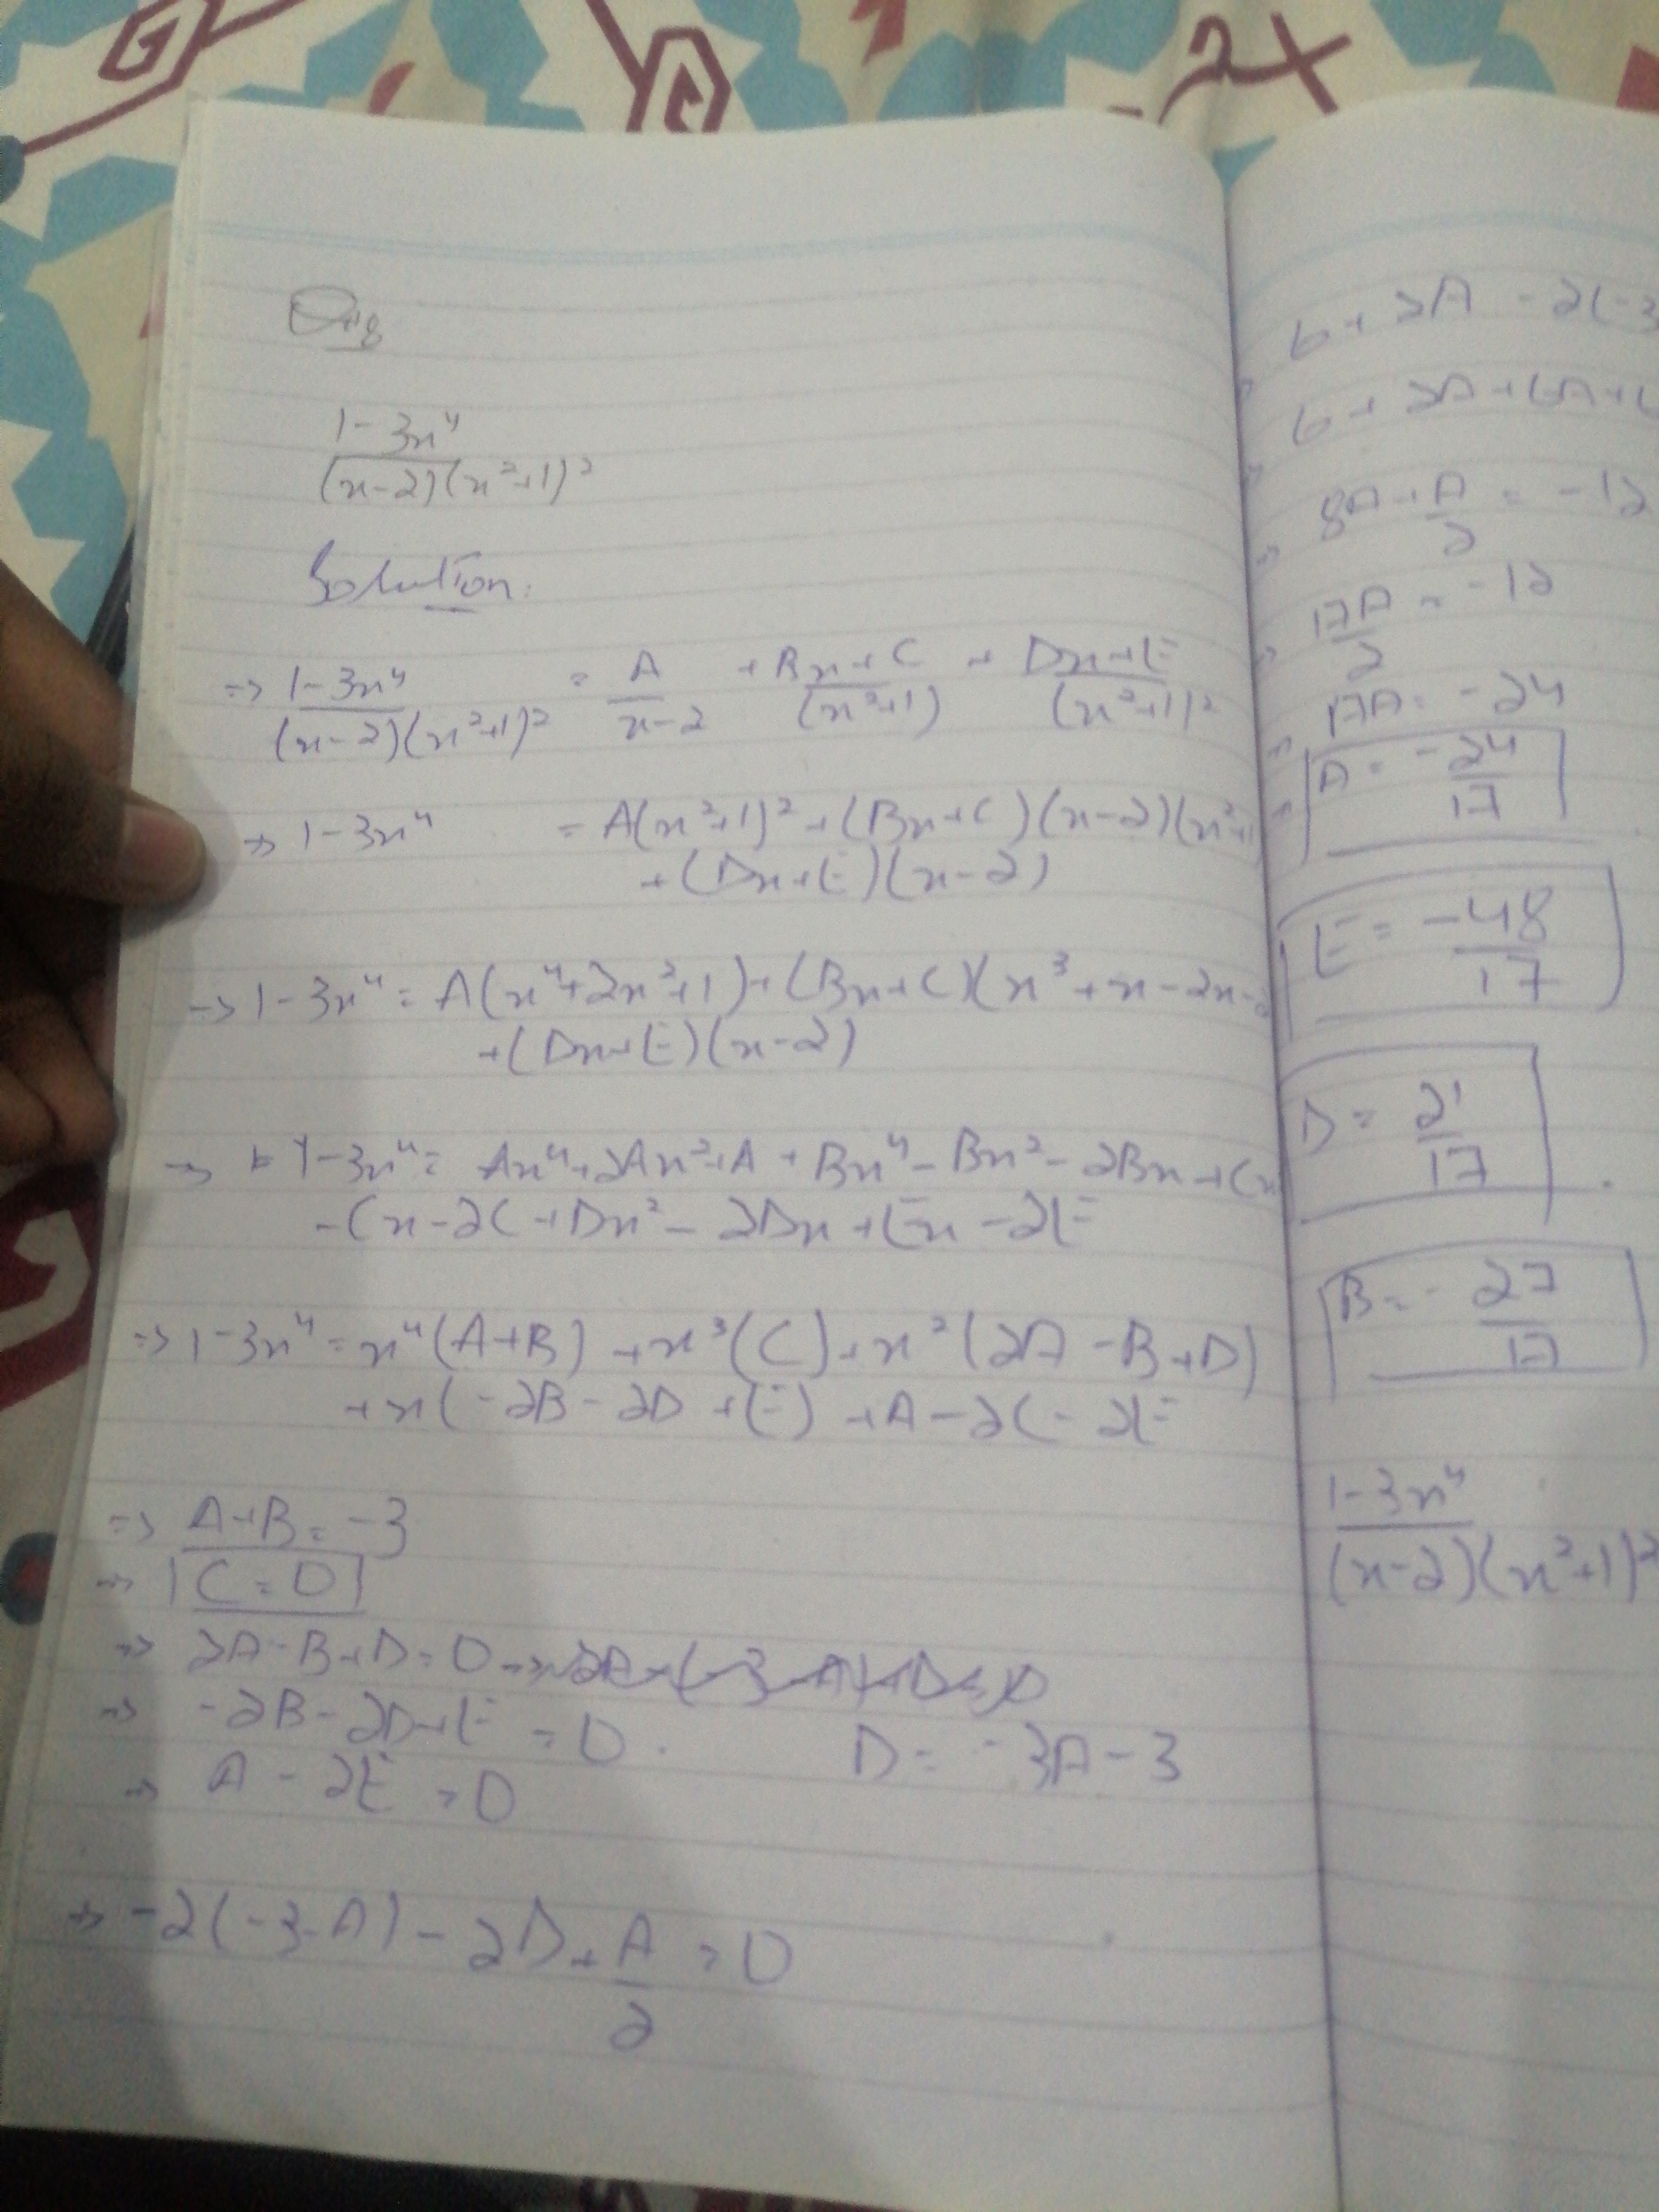 Q#8
1-3x⁴
(x-2)(x²+1)²
Solution.
=> 1-3x⁴ / (x-2)(x²+1)² = A / x-2 + Bx+C / (x²+1) + Dx+E / (x²+1)²
=> 1-3x⁴ = A(x²+1)²+(Bx+C)(x-2)(x²+1
+(Dx+E)(x-2)
=> 1-3x⁴ = A(x⁴+2x²+1)+(Bx+C)(x³+x-2x-2
+(Dx+E)(x-2)
=> 1-3x⁴ = Ax⁴+2Ax²+A+Bx⁴-Bx²-2Bx+Cx
-Cx-2C+Dx²-2Dx+Ex-2E
=> 1-3x⁴=x⁴(A+B)+x³(C)+x²(2A-B+D)
+x(-2B-2D+E)+A-2C-2E
=> A+B=-3
=> C=0
=> 2A-B+D=0
=> -2B-2D+E=0.
D=-3A-3
=> A-2E=0
=> -2(-3-A)-2D+A/2=0
6+2A-2(-3
6+2A+6A+6
8A+A/2=-12
17A/2=-12
17A=-24
A=-24/17
E=-48/17
D=21/17
B=-27/17
1-3x⁴
(x-2)(x²+1)²